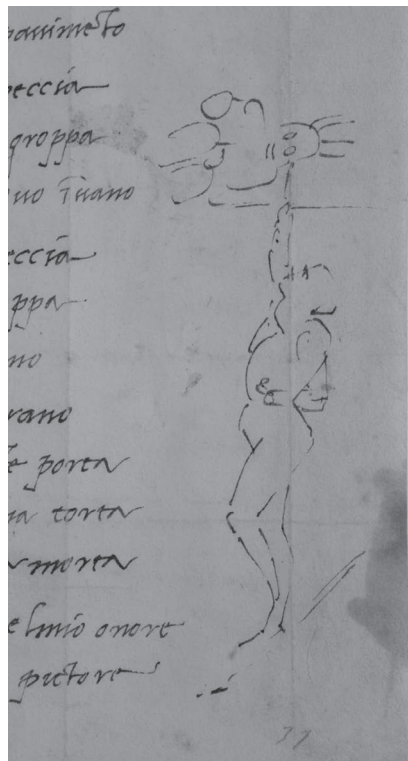 pauimēto
peccia
groppa
uo ĩuano
eccia
ppa
no
rano
te porta
na torta
morta
e lmio onore
pictore
37